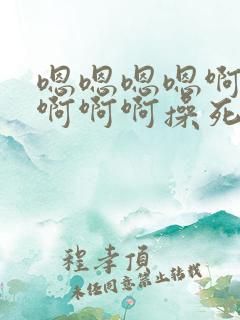 嗯嗯嗯嗯啊
啊啊啊操死
程孝顶
未经同意禁止转载